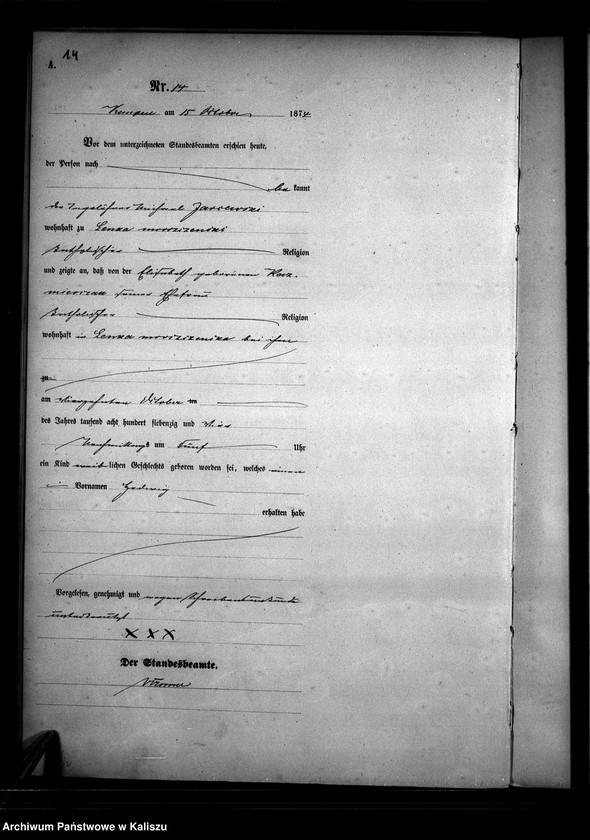 14
A.
Nr. 14
Kempen am 15 October 1874
Vor dem unterzeichneten Standesbeamten erschien heute,
der Person nach
be kannt
der Tagelöhner Michael
wohnhaft zu Lenka mroczenska
katholischer Religion
und zeigte an, daß von der Elisabeth geborenen
seiner Ehefrau
katholischer Religion
wohnhaft in Lenka mroczenska bei ihm
zu
am vierzehnten October
des Jahres tausend acht hundert siebenzig und vier
Nachmittags um fünf Uhr
ein Kind weiblichen Geschlechts geboren worden sei, welches einen
Vornamen Hedwig
erhalten habe
Vorgelesen, genehmigt und wegen Schreibensunkunde
unterkreuzt
XXX
Der Standesbeamte.
Archiwum Państwowe w Kaliszu